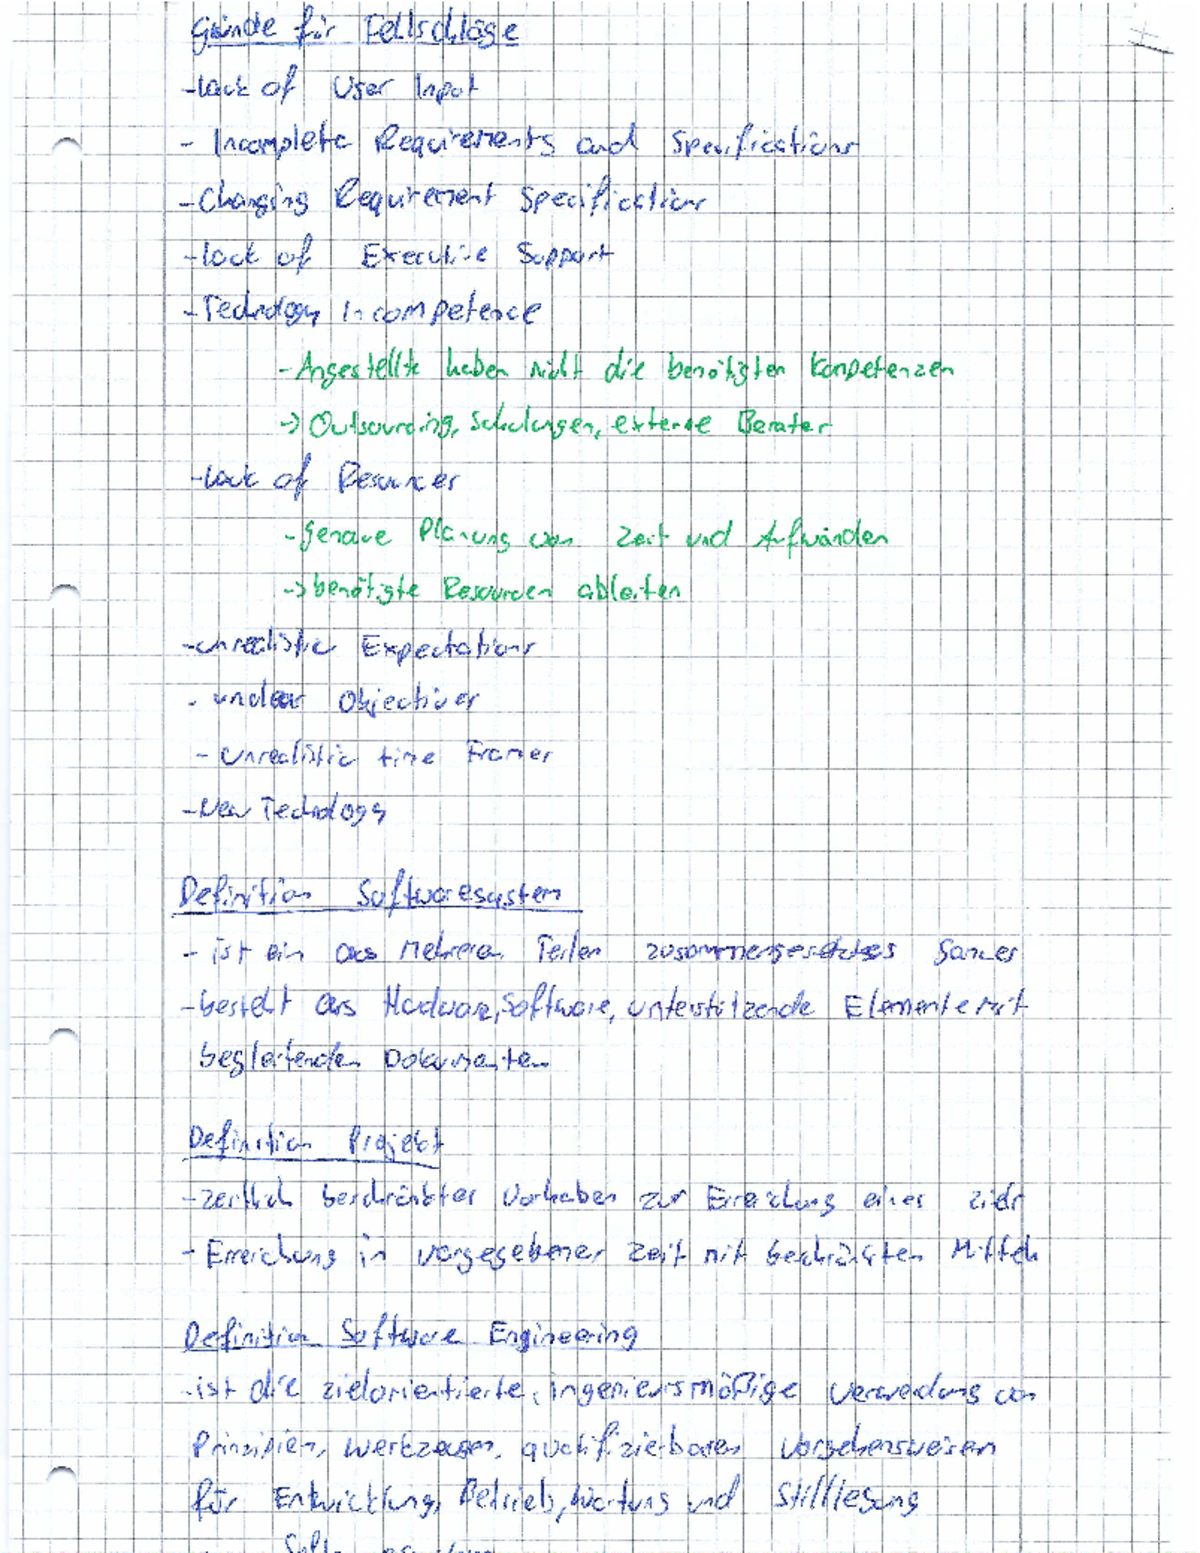 Gründe für Fehlschläge
- lack of User Input
- Incomplete Requirements and Specifications
- Changing Requirement Specifications
- lack of Executive Support
- Technology Incompetence
- Angestellte haben nicht die benötigten Kompetenzen
-> Outsourcing, Schulungen, externe Berater
- lack of Resources
- genaue Planung von Zeit und Aufwänden
-> benötigte Resourcen ableiten
- unrealistic Expectations
- unclear Objectives
- unrealistic time Frames
- New Technology
Definition Softwaresystem
- ist ein aus mehreren Teilen zusammengesetztes Ganzes
- besteht aus Hardware, Software, unterstützende Elemente mit
begleitenden Dokumenten
Definition Projekt
- zeitlich beschränktes Vorhaben zur Erreichung eines Ziels
- Erreichung in vorgegebener Zeit mit beschränkten Mitteln
Definition Software Engineering
- ist die zielorientierte, ingenieursmäßige Verwendung von
Prinzipien, Werkzeugen, quantifizierbaren Vorgehensweisen
für Entwicklung, Betrieb, Wartung und Stilllegung